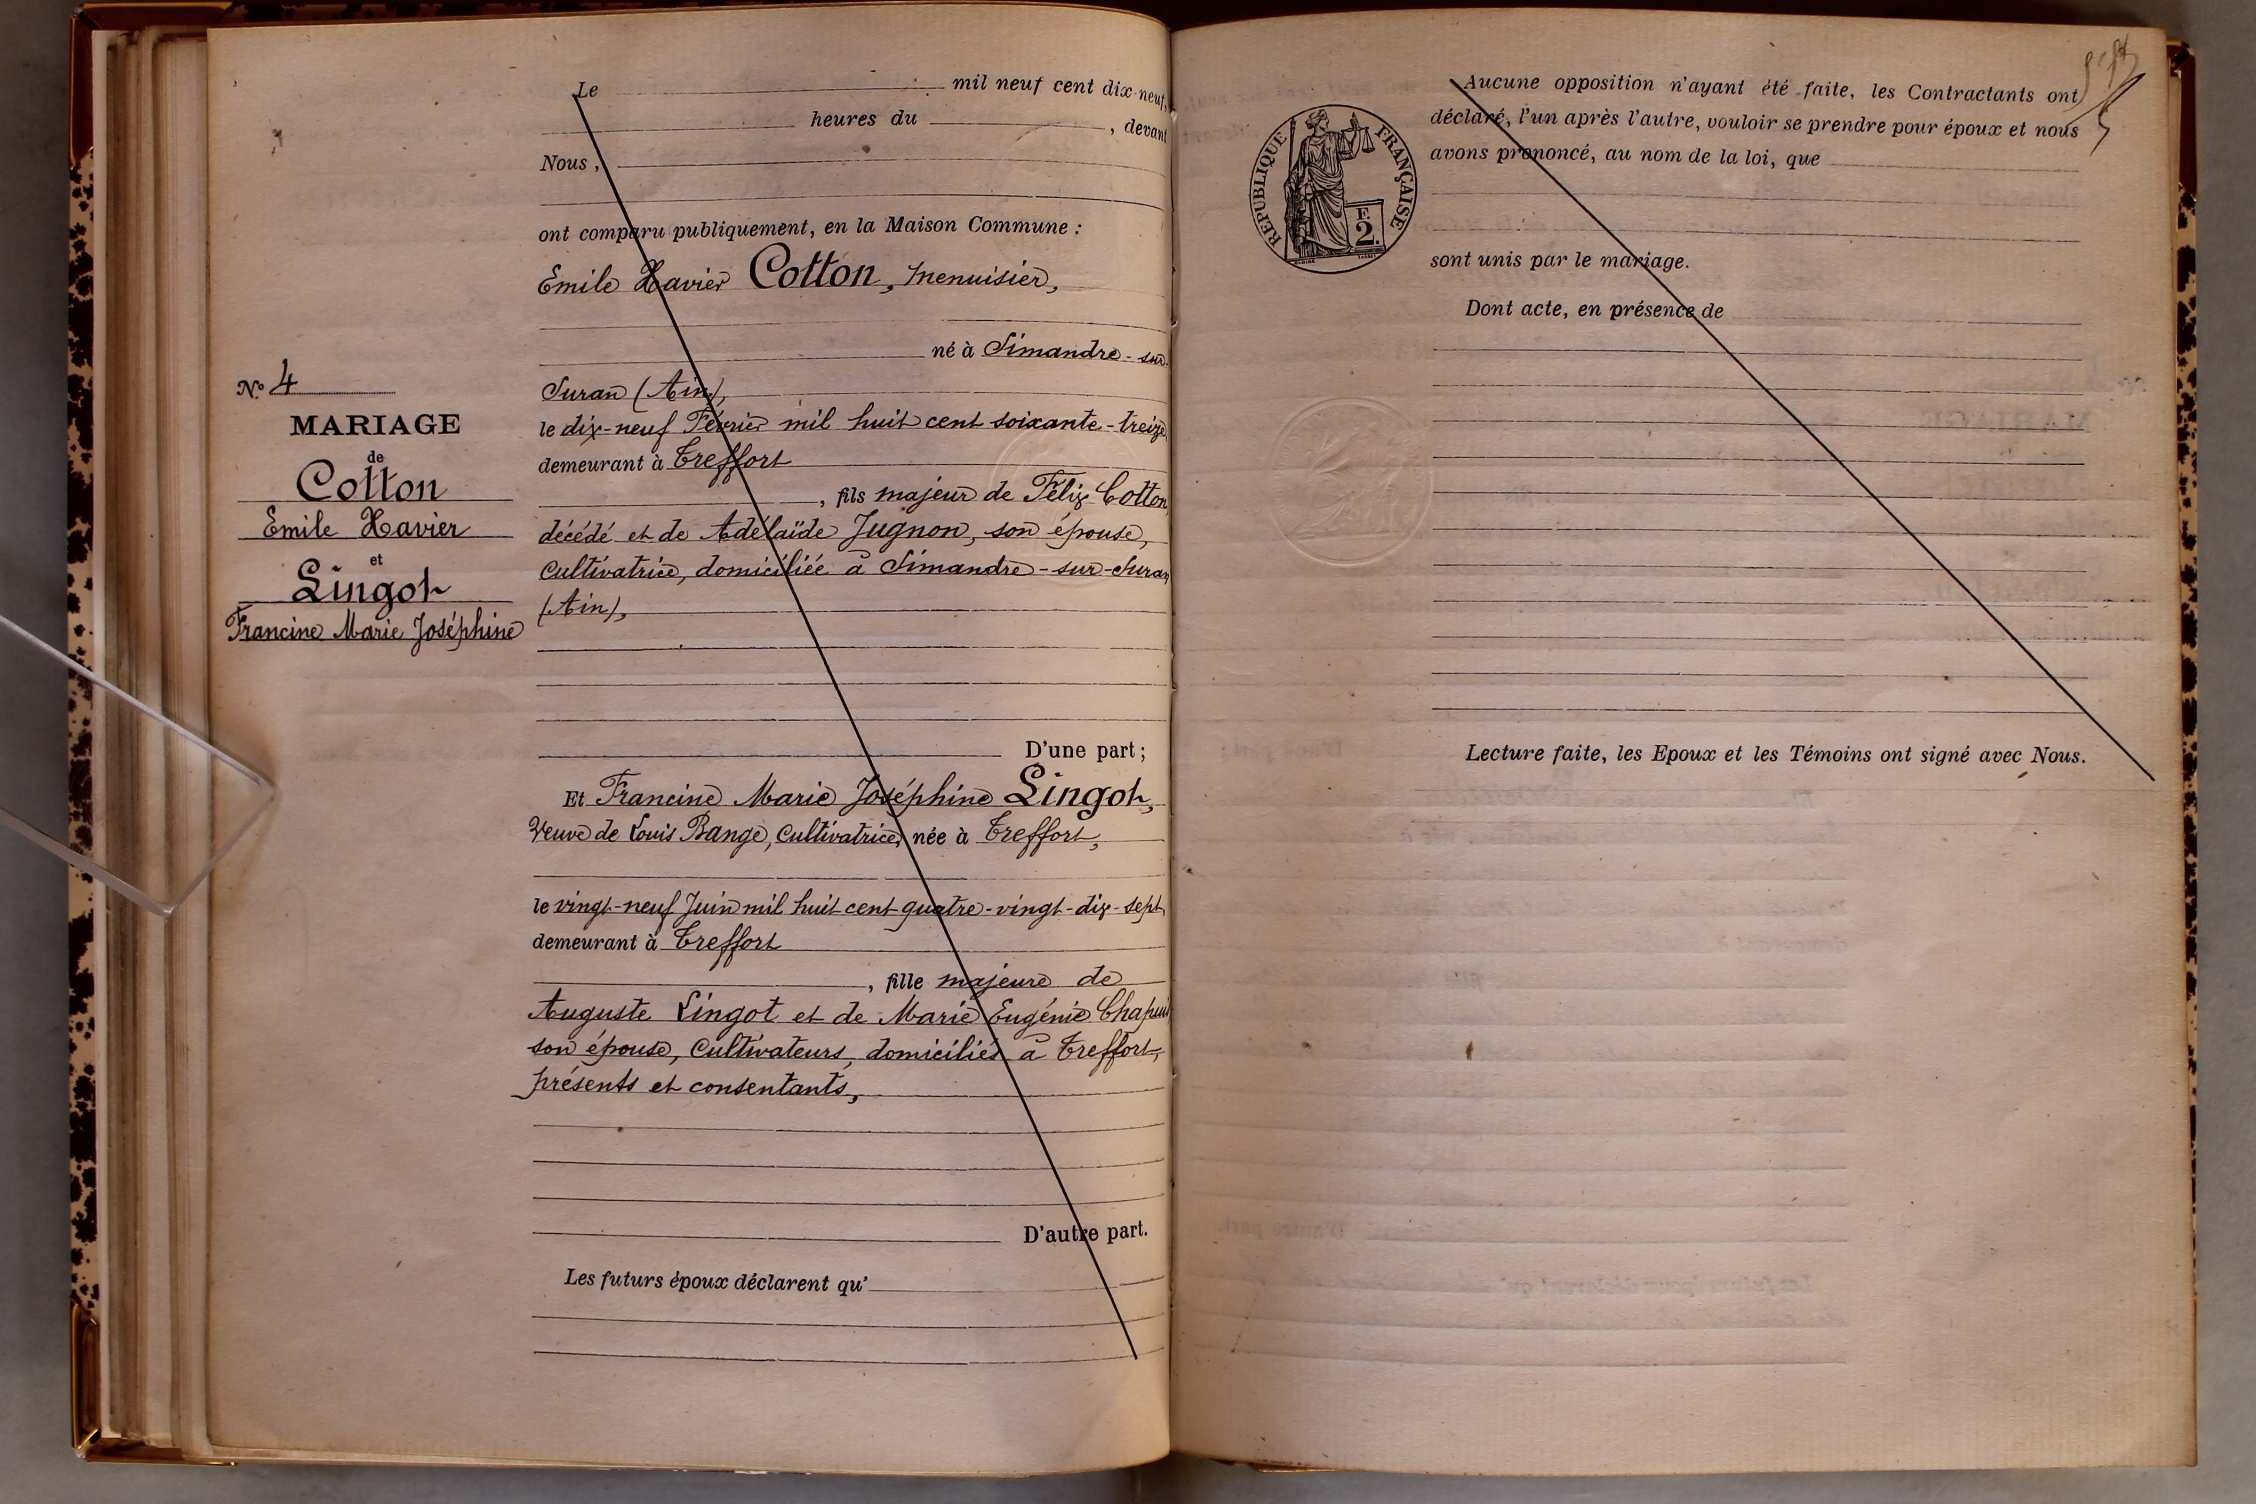 Le mil neuf cent dix-neuf,
heures du , devant
Nous ,
ont comparu publiquement, en la Maison Commune :
Emile Xavier Cotton, menuisier,
né à Simandre-sur-
Suran (Ain),
le dix-neuf Février mil huit cent soixante-treize
demeurant à Treffort
, fils majeur de Félix Cotton,
décédé et de Adélaïde Jugnon, son épouse,
cultivatrice, domiciliée à Simandre-sur-Suran
(Ain),
D'une part ;
Et Francine Marie Joséphine Lingot,
Veuve de Louis Bange, cultivatrice, née à Treffort,
le vingt-neuf Juin mil huit cent quatre-vingt-dix-sept,
demeurant à Treffort
, fille majeure de
Auguste Lingot et de Marie Eugénie Chapuis
son épouse, cultivateurs, domiciliés à Treffort,
présents et consentants,
D'autre part.
Les futurs époux déclarent qu'
N.º 4
MARIAGE
de
Cotton
Emile Xavier
et
Lingot
Francine Marie Joséphine
REPUBLIQUE FRANÇAISE
F.
2.
Aucune opposition n'ayant été faite, les Contractants ont
déclaré, l'un après l'autre, vouloir se prendre pour époux et nous
avons prononcé, au nom de la loi, que
sont unis par le mariage.
Dont acte, en présence de
Lecture faite, les Epoux et les Témoins ont signé avec Nous.